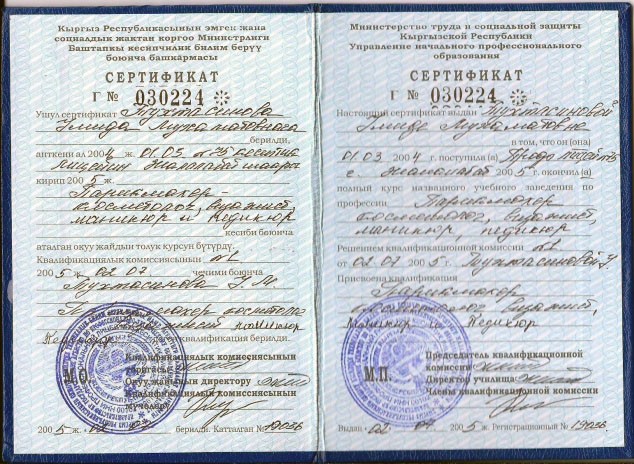 Кыргыз Республикасынын эмгек жана
социалдык жактан коргоо Министрлиги
Баштапкы кесипчилик билим берүү
боюнча башкармасы
СЕРТИФИКАТ
Г № 030224
Ушул сертификат Тухтасинова
берилди.
анткени ал 2004 ж. 01.03
кирип 2005 ж.
Парикмахер-
косметолог, визажист,
маникюр и педикюр
кесиби боюнча
аталган окуу жайдын толук курсун бүтүрдү.
Квалификациялык комиссиясынын №1
2005 ж 02 07 чечими боюнча
Тухтасинова У. М.
косметолог
маникюр
квалификация берилди.
Квалификациялык комиссиясынын
төрагасы
Окуу жайдын директору
Квалификациялык комиссиясынын
мүчөлөрү
М.О.
2005 ж. 02 берилди. Катталган № 19036
Министерство труда и социальной защиты
Кыргызской Республики
Управление начального профессионального
образования
СЕРТИФИКАТ
Г № 030224
Настоящий сертификат выдан Тухтасиновой
в том, что он (она)
01.03 2004 г. поступила (а)
2005 г. окончил (а)
полный курс названного учебного заведения по
профессии Парикмахер
косметолог, визажист,
маникюр, педикюр
Решением квалификационной комиссии №1
от 02 07 2005 г. Тухтасиновой У.
Присвоена квалификация
Парикмахер
косметолог визажист,
маникюр и педикюр
Председатель квалификационной
комиссии
Директор училища
Члены квалификационной комиссии
М.П.
Выдан 02 2005 г. Регистрационный № 19036